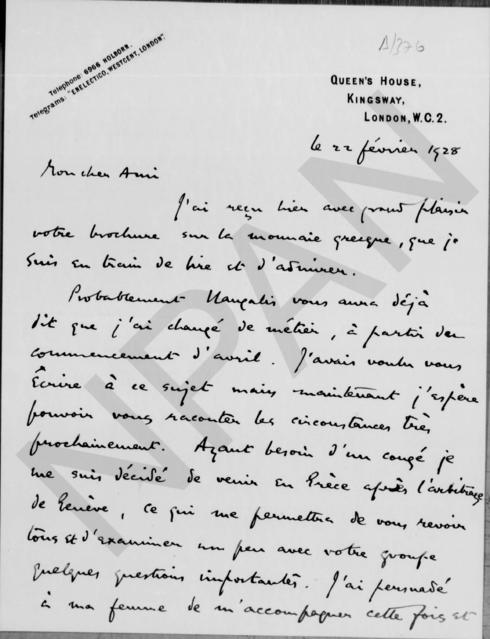 A/376
Telephone: 6966 HOLBORN.
Telegrams: "ENELECTICO, WESTCENT, LONDON."
QUEEN'S HOUSE,
KINGSWAY,
LONDON, W.C.2.
le 22 février 1928
Mon cher Ami
J'ai reçu hier avec grand plaisir
votre brochure sur la monnaie grecque, que je
suis en train de lire et d'admirer.
Probablement vous aura déjà
dit que j'ai changé de métier, à partir du
commencement d'avril. J'avais voulu vous
écrire à ce sujet mais maintenant j'espère
pouvoir vous raconter les circonstances très
prochainement. Ayant besoin d'un congé je
me suis décidé de venir en Grèce après l'arbitrage
de Genève, ce qui me permettra de vous revoir
tous et d'examiner un peu avec votre groupe
quelques questions importantes. J'ai persuadé
à ma femme de m'accompagner cette fois et
NPAN